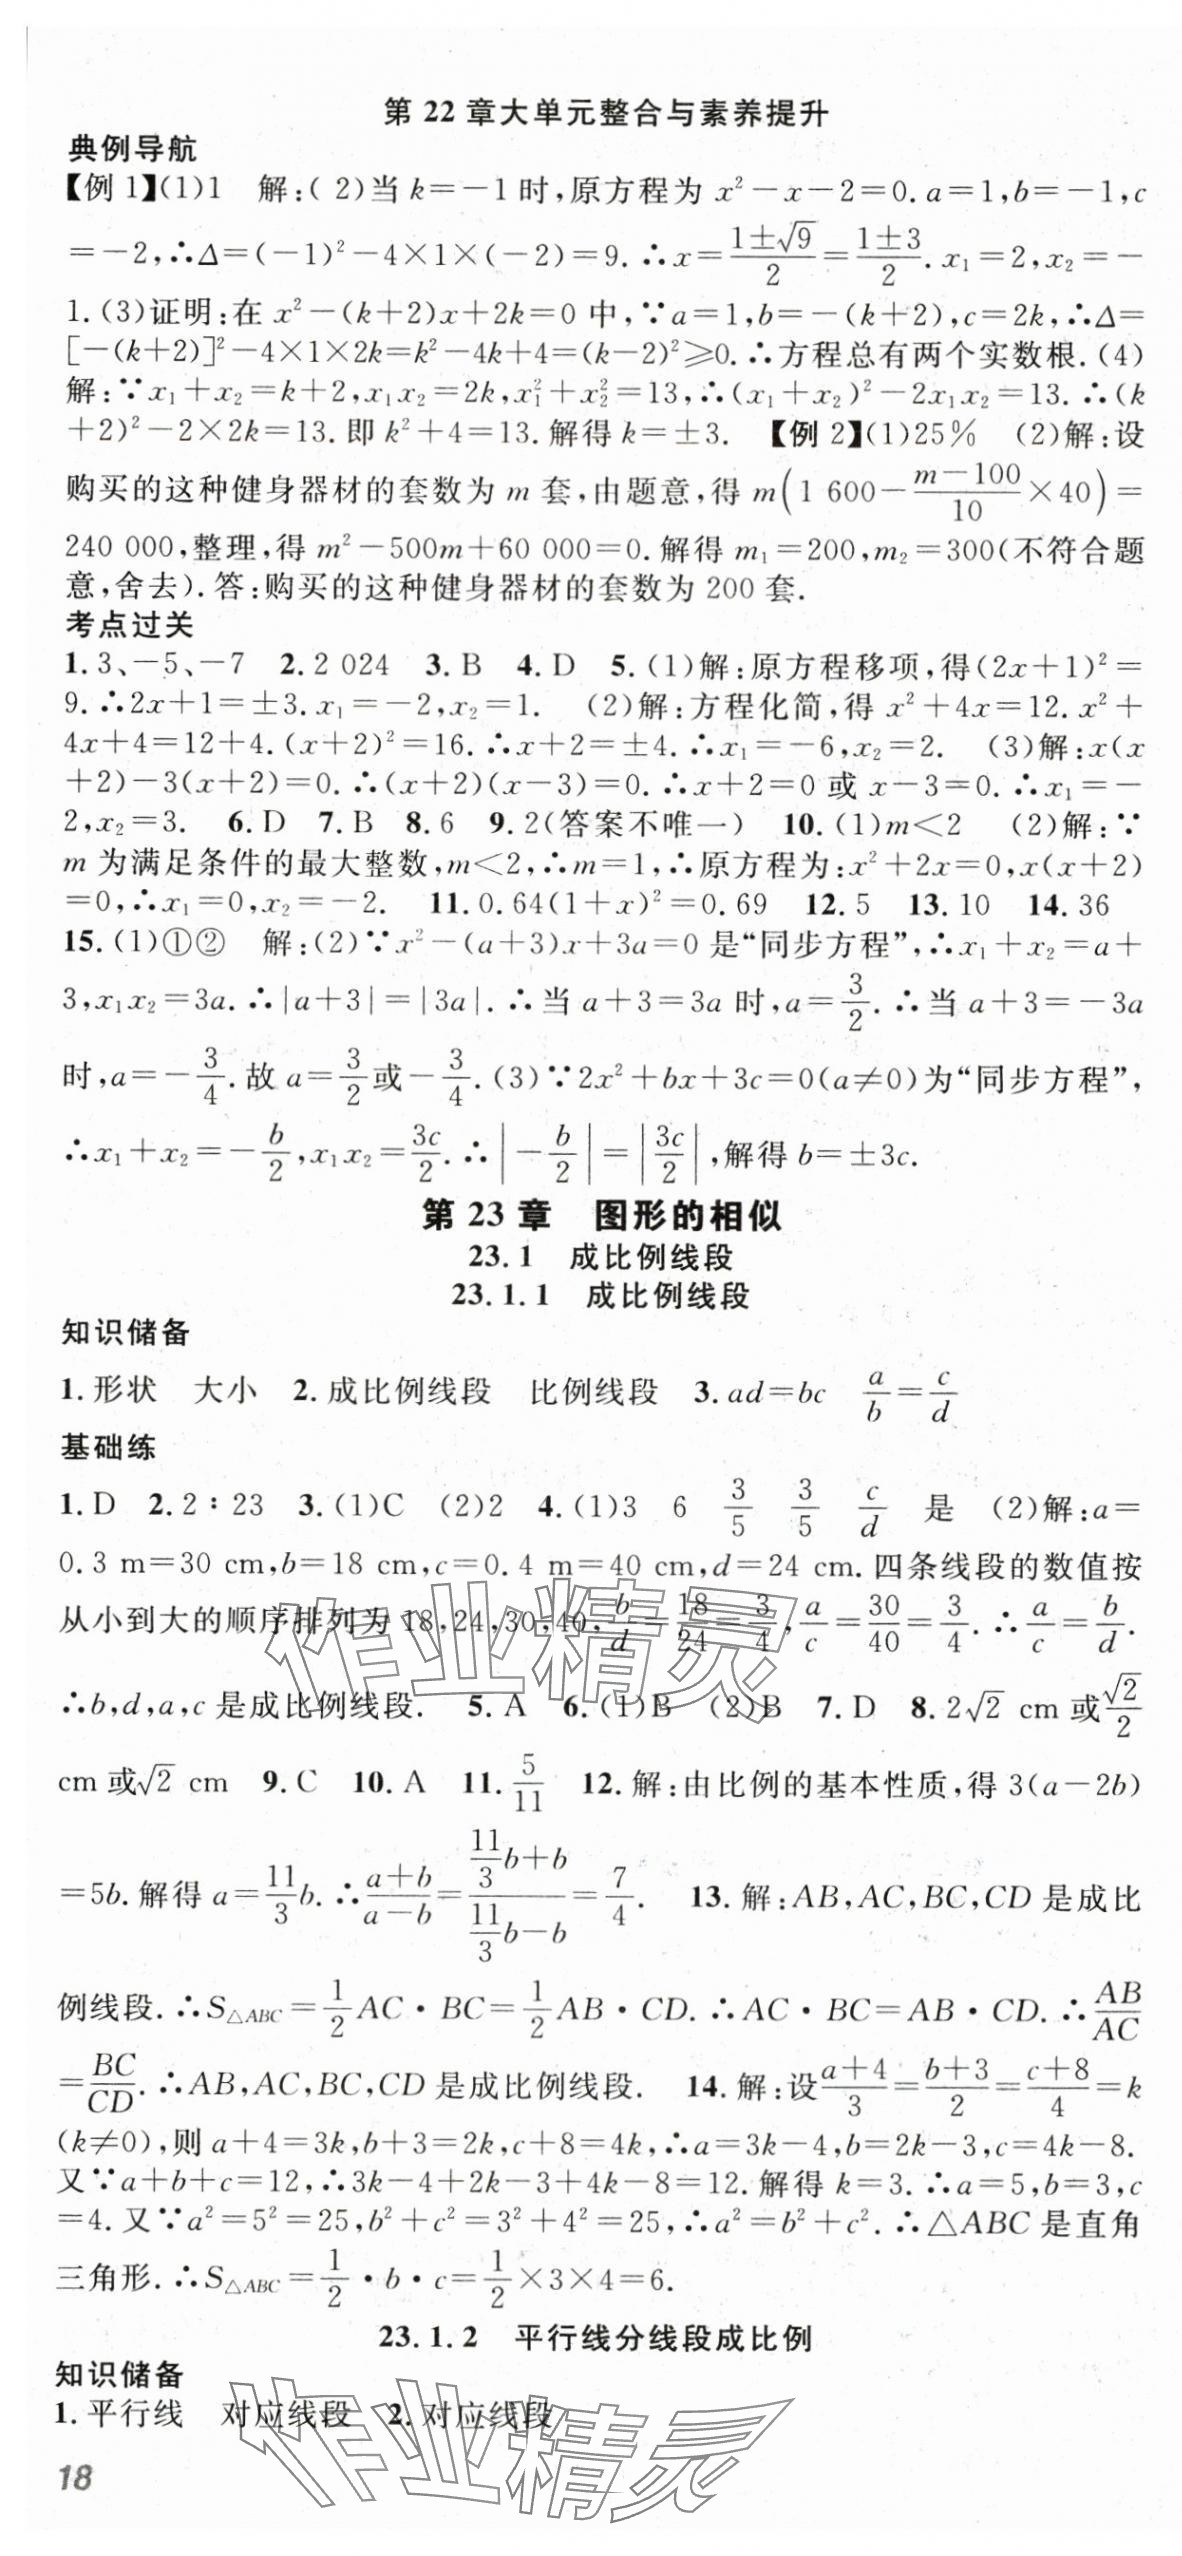 第 22 章大单元整合与素养提升
典例导航
【例 1】(1)1　解:( 2)当 k=-1 时,原方程为 x²-x-2=0.a=1,b=-1,c
=-2,∴Δ=(-1)²-4×1×(-2)=9.∴x=\frac{1±√9}{2}=\frac{1±3}{2}.x₁=2,x₂=-
1.(3)证明:在 x²-(k+2)x+2k=0 中,∵a=1,b=-(k+2),c=2k,∴Δ=
[-(k+2)]²-4×1×2k=k²-4k+4=(k-2)²≥0.∴方程总有两个实数根.(4)
解:∵x₁+x₂=k+2,x₁x₂=2k,x₁²+x₂²=13,∴(x₁+x₂)²-2x₁x₂=13.∴(k
+2)²-2×2k=13.即 k²+4=13.解得 k=±3.　【例 2】(1)25%　(2)解:设
购买的这种健身器材的套数为 m 套,由题意,得 m(1 600-\frac{m-100}{10}×40)=
240 000,整理,得 m²-500m+60 000=0.解得 m₁=200,m₂=300(不符合题
意,舍去).答:购买的这种健身器材的套数为 200 套.
考点过关
1.3、-5、-7　2.2 024　3.B　4.D　5.(1)解:原方程移项,得(2x+1)²=
9.∴2x+1=±3.x₁=-2,x₂=1.　(2)解:方程化简,得 x²+4x=12.x²+
4x+4=12+4.(x+2)²=16.∴x+2=±4.∴x₁=-6,x₂=2.　(3)解:x(x
+2)-3(x+2)=0.∴(x+2)(x-3)=0.∴x+2=0 或 x-3=0.∴x₁=-
2,x₂=3.　6.D　7.B　8.6　9.2(答案不唯一)　10.(1)m<2　(2)解:∵
m 为满足条件的最大整数,m<2,∴m=1,∴原方程为:x²+2x=0,x(x+2)
=0,∴x₁=0,x₂=-2.　11.0.64(1+x)²=0.69　12.5　13.10　14.36
15.(1)①②　解:(2)∵x²-(a+3)x+3a=0 是“同步方程”,∴x₁+x₂=a+
3,x₁x₂=3a.∴|a+3|=|3a|.∴当 a+3=3a 时,a=\frac{3}{2}.∴当 a+3=-3a
时,a=-\frac{3}{4}.故 a=\frac{3}{2}或-\frac{3}{4}.(3)∵2x²+bx+3c=0(a≠0)为“同步方程”,
∴x₁+x₂=-\frac{b}{2},x₁x₂=\frac{3c}{2}.∴|-\frac{b}{2}|=|\frac{3c}{2}|,解得 b=±3c.
第 23 章　图形的相似
23.1　成比例线段
23.1.1　成比例线段
知识储备
1.形状　大小　2.成比例线段　比例线段　3.ad=bc　\frac{a}{b}=\frac{c}{d}
基础练
1.D　2.2∶23　3.(1)C　(2)2　4.(1)3　6　\frac{3}{5}　\frac{3}{5}　\frac{c}{d}　是　(2)解:a=
0.3 m=30 cm,b=18 cm,c=0.4 m=40 cm,d=24 cm.四条线段的数值按
从小到大的顺序排列为 18,24,30,40,\frac{b}{d}=\frac{18}{24}=\frac{3}{4},\frac{a}{c}=\frac{30}{40}=\frac{3}{4}.∴\frac{a}{c}=\frac{b}{d}.
∴b,d,a,c 是成比例线段.　5.A　6.(1)B　(2)B　7.D　8.2√2 cm 或\frac{√2}{2}
cm 或√2 cm　9.C　10.A　11.\frac{5}{11}　12.解:由比例的基本性质,得 3(a-2b)
=5b.解得 a=\frac{11}{3}b.∴\frac{a+b}{a-b}=\frac{\frac{11}{3}b+b}{\frac{11}{3}b-b}=\frac{7}{4}.　13.解:AB,AC,BC,CD 是成比
例线段.∴S△ABC=\frac{1}{2}AC·BC=\frac{1}{2}AB·CD.∴AC·BC=AB·CD.∴\frac{AB}{AC}
=\frac{BC}{CD}.∴AB,AC,BC,CD 是成比例线段.　14.解:设\frac{a+4}{3}=\frac{b+3}{2}=\frac{c+8}{4}=k
(k≠0),则 a+4=3k,b+3=2k,c+8=4k,∴a=3k-4,b=2k-3,c=4k-8.
又∵a+b+c=12,∴3k-4+2k-3+4k-8=12.解得 k=3.∴a=5,b=3,c
=4.又∵a²=5²=25,b²+c²=3²+4²=25,∴a²=b²+c².∴△ABC 是直角
三角形.∴S△ABC=\frac{1}{2}·b·c=\frac{1}{2}×3×4=6.
23.1.2　平行线分线段成比例
知识储备
1.平行线　对应线段　2.对应线段
18
作业精灵
作业精灵